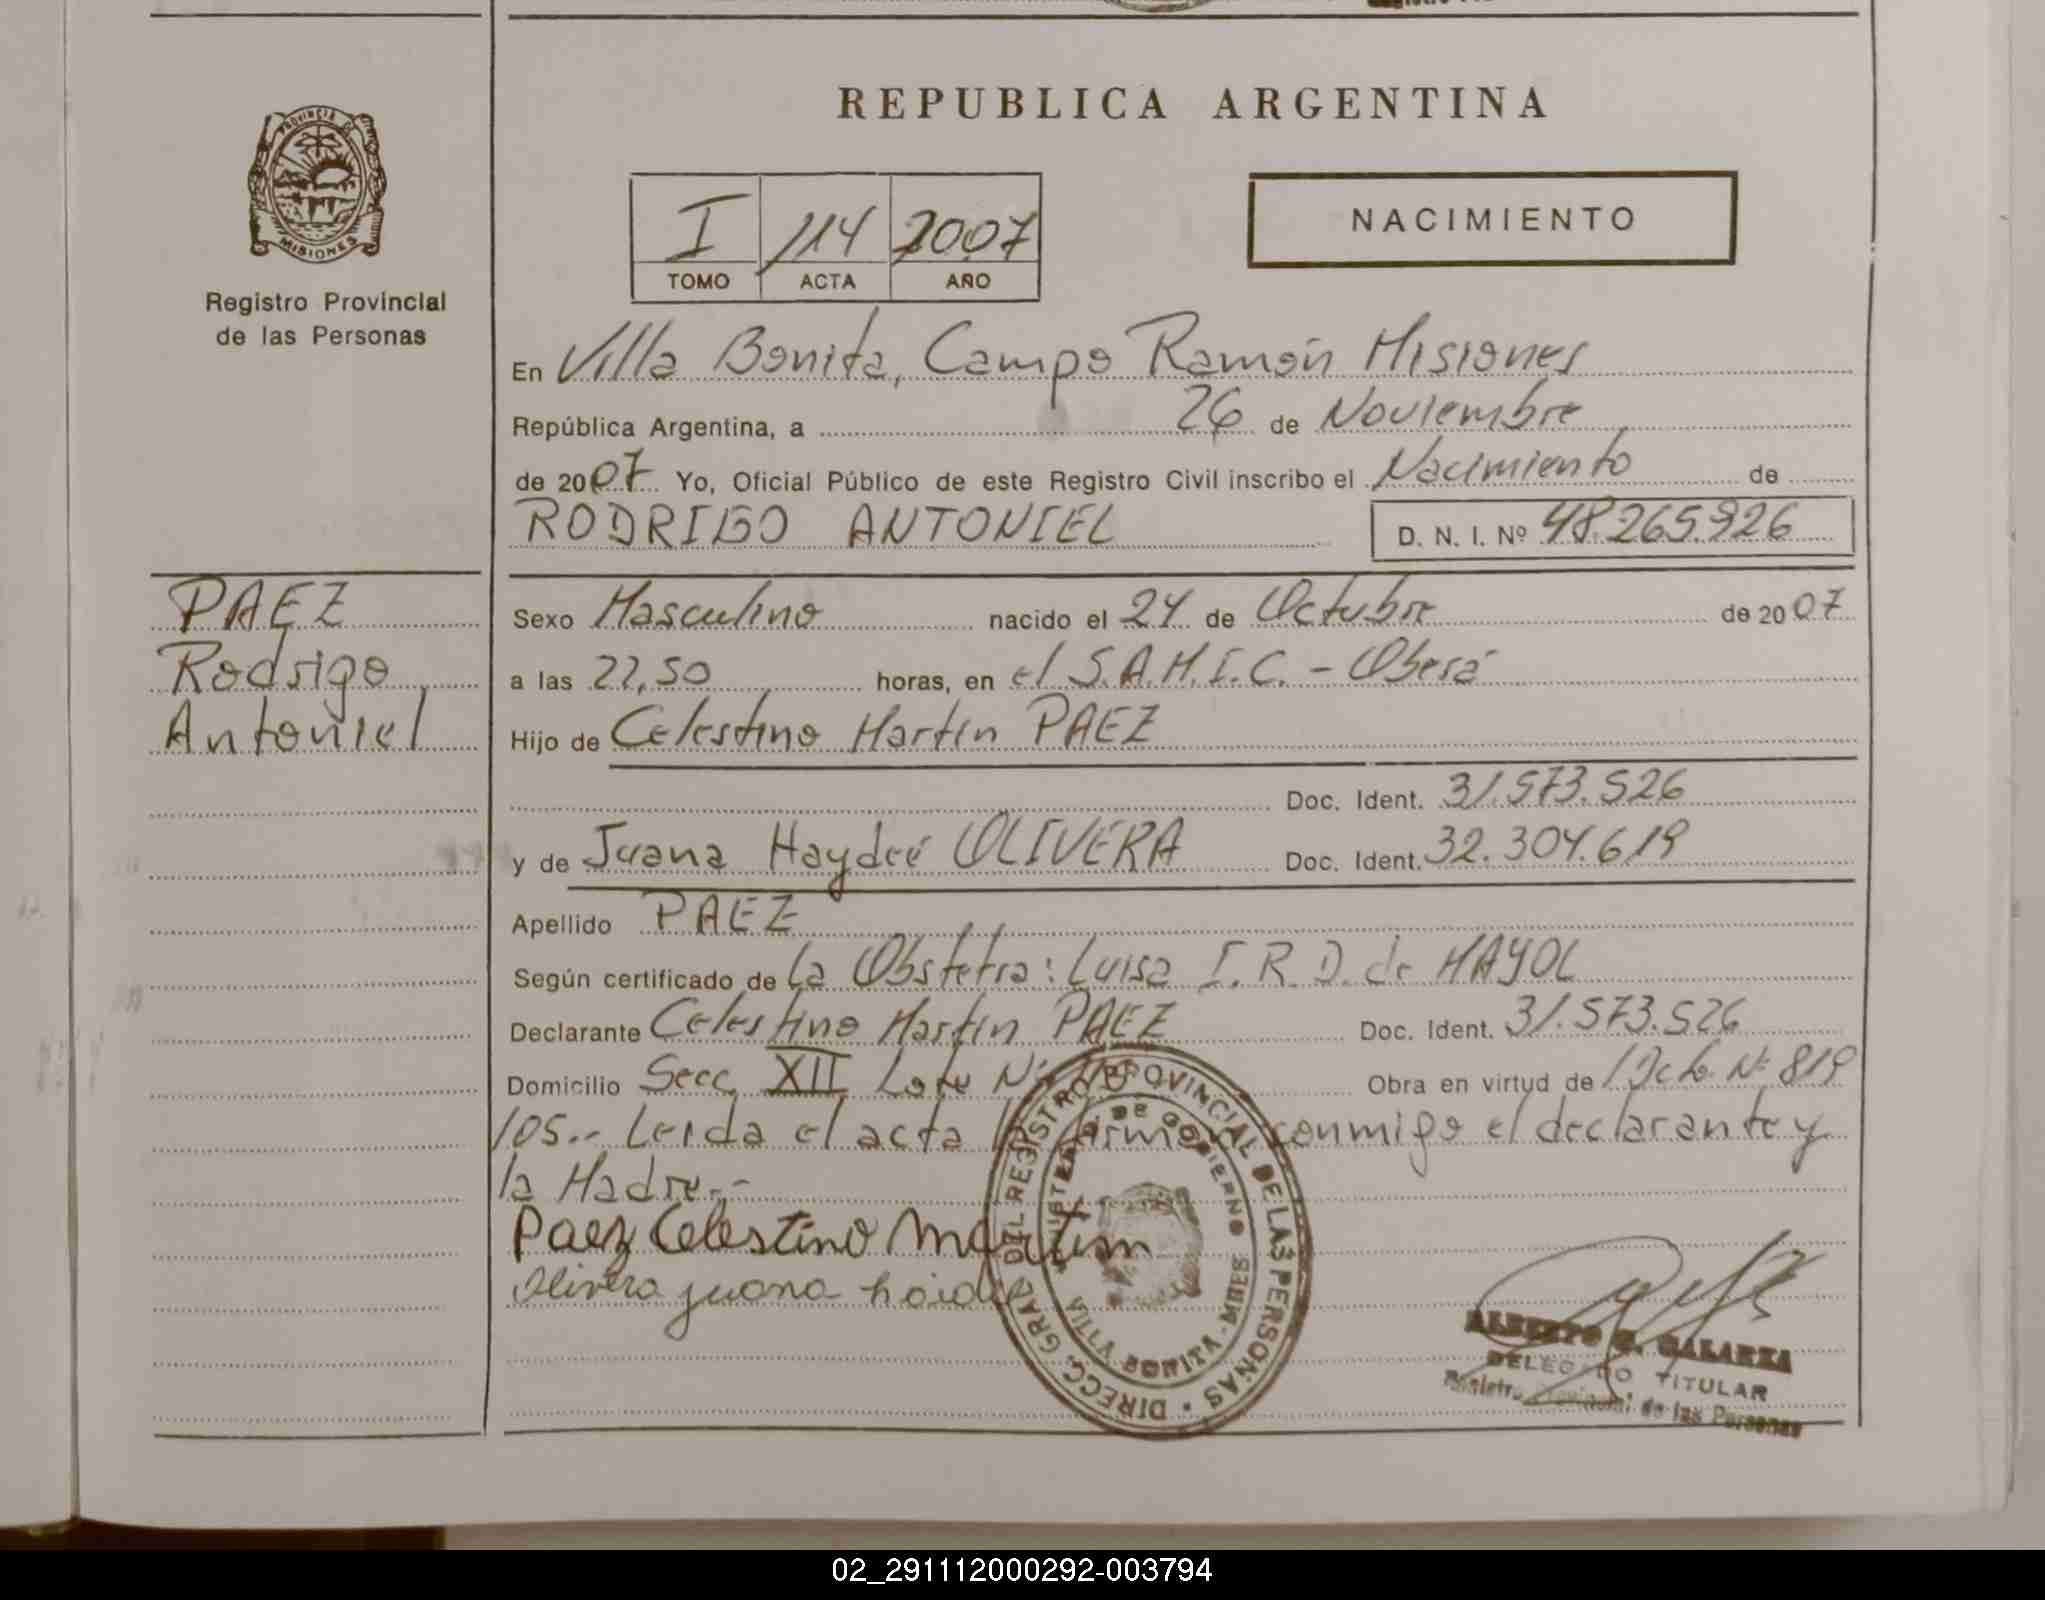 REPUBLICA ARGENTINA
PROVINCIA DE MISIONES
Registro Provincial
de las Personas
I 114 2007
TOMO ACTA AÑO
NACIMIENTO
En Villa Bonita, Campo Ramón Misiones
República Argentina, a 26 de Noviembre
de 2007 Yo, Oficial Público de este Registro Civil inscribo el Nacimiento de
RODRIGO ANTONIEL D. N. I. Nº 48.265.926
PAEZ
Rodrigo
Antoniel
Sexo Masculino nacido el 24 de Octubre de 2007
a las 22,50 horas, en el S.A.M.I.C. - Oberá
Hijo de Celestino Martín PAEZ
Doc. Ident. 31.573.526
y de Juana Haydeé OLIVERA Doc. Ident. 32.304.619
Apellido PAEZ
Según certificado de la Obstetra: Luisa I. R. D. de MAYOL
Declarante Celestino Martín PAEZ Doc. Ident. 31.573.526
Domicilio Secc. XII Lote Nº Obra en virtud de Dcto. Nº 819
105.- Leida el acta la firman conmigo el declarante y
la Madre.-
Paez Celestino Martim
Olivera juana haide
DIRECC. GRAL DEL REGISTRO PROVINCIAL DE LAS PERSONAS
MINISTERIO DE GOBIERNO
VILLA BONITA - MNES
ALBERTO GALARZA
DELEGADO TITULAR
Registro Provincial de las Personas
02_291112000292-003794